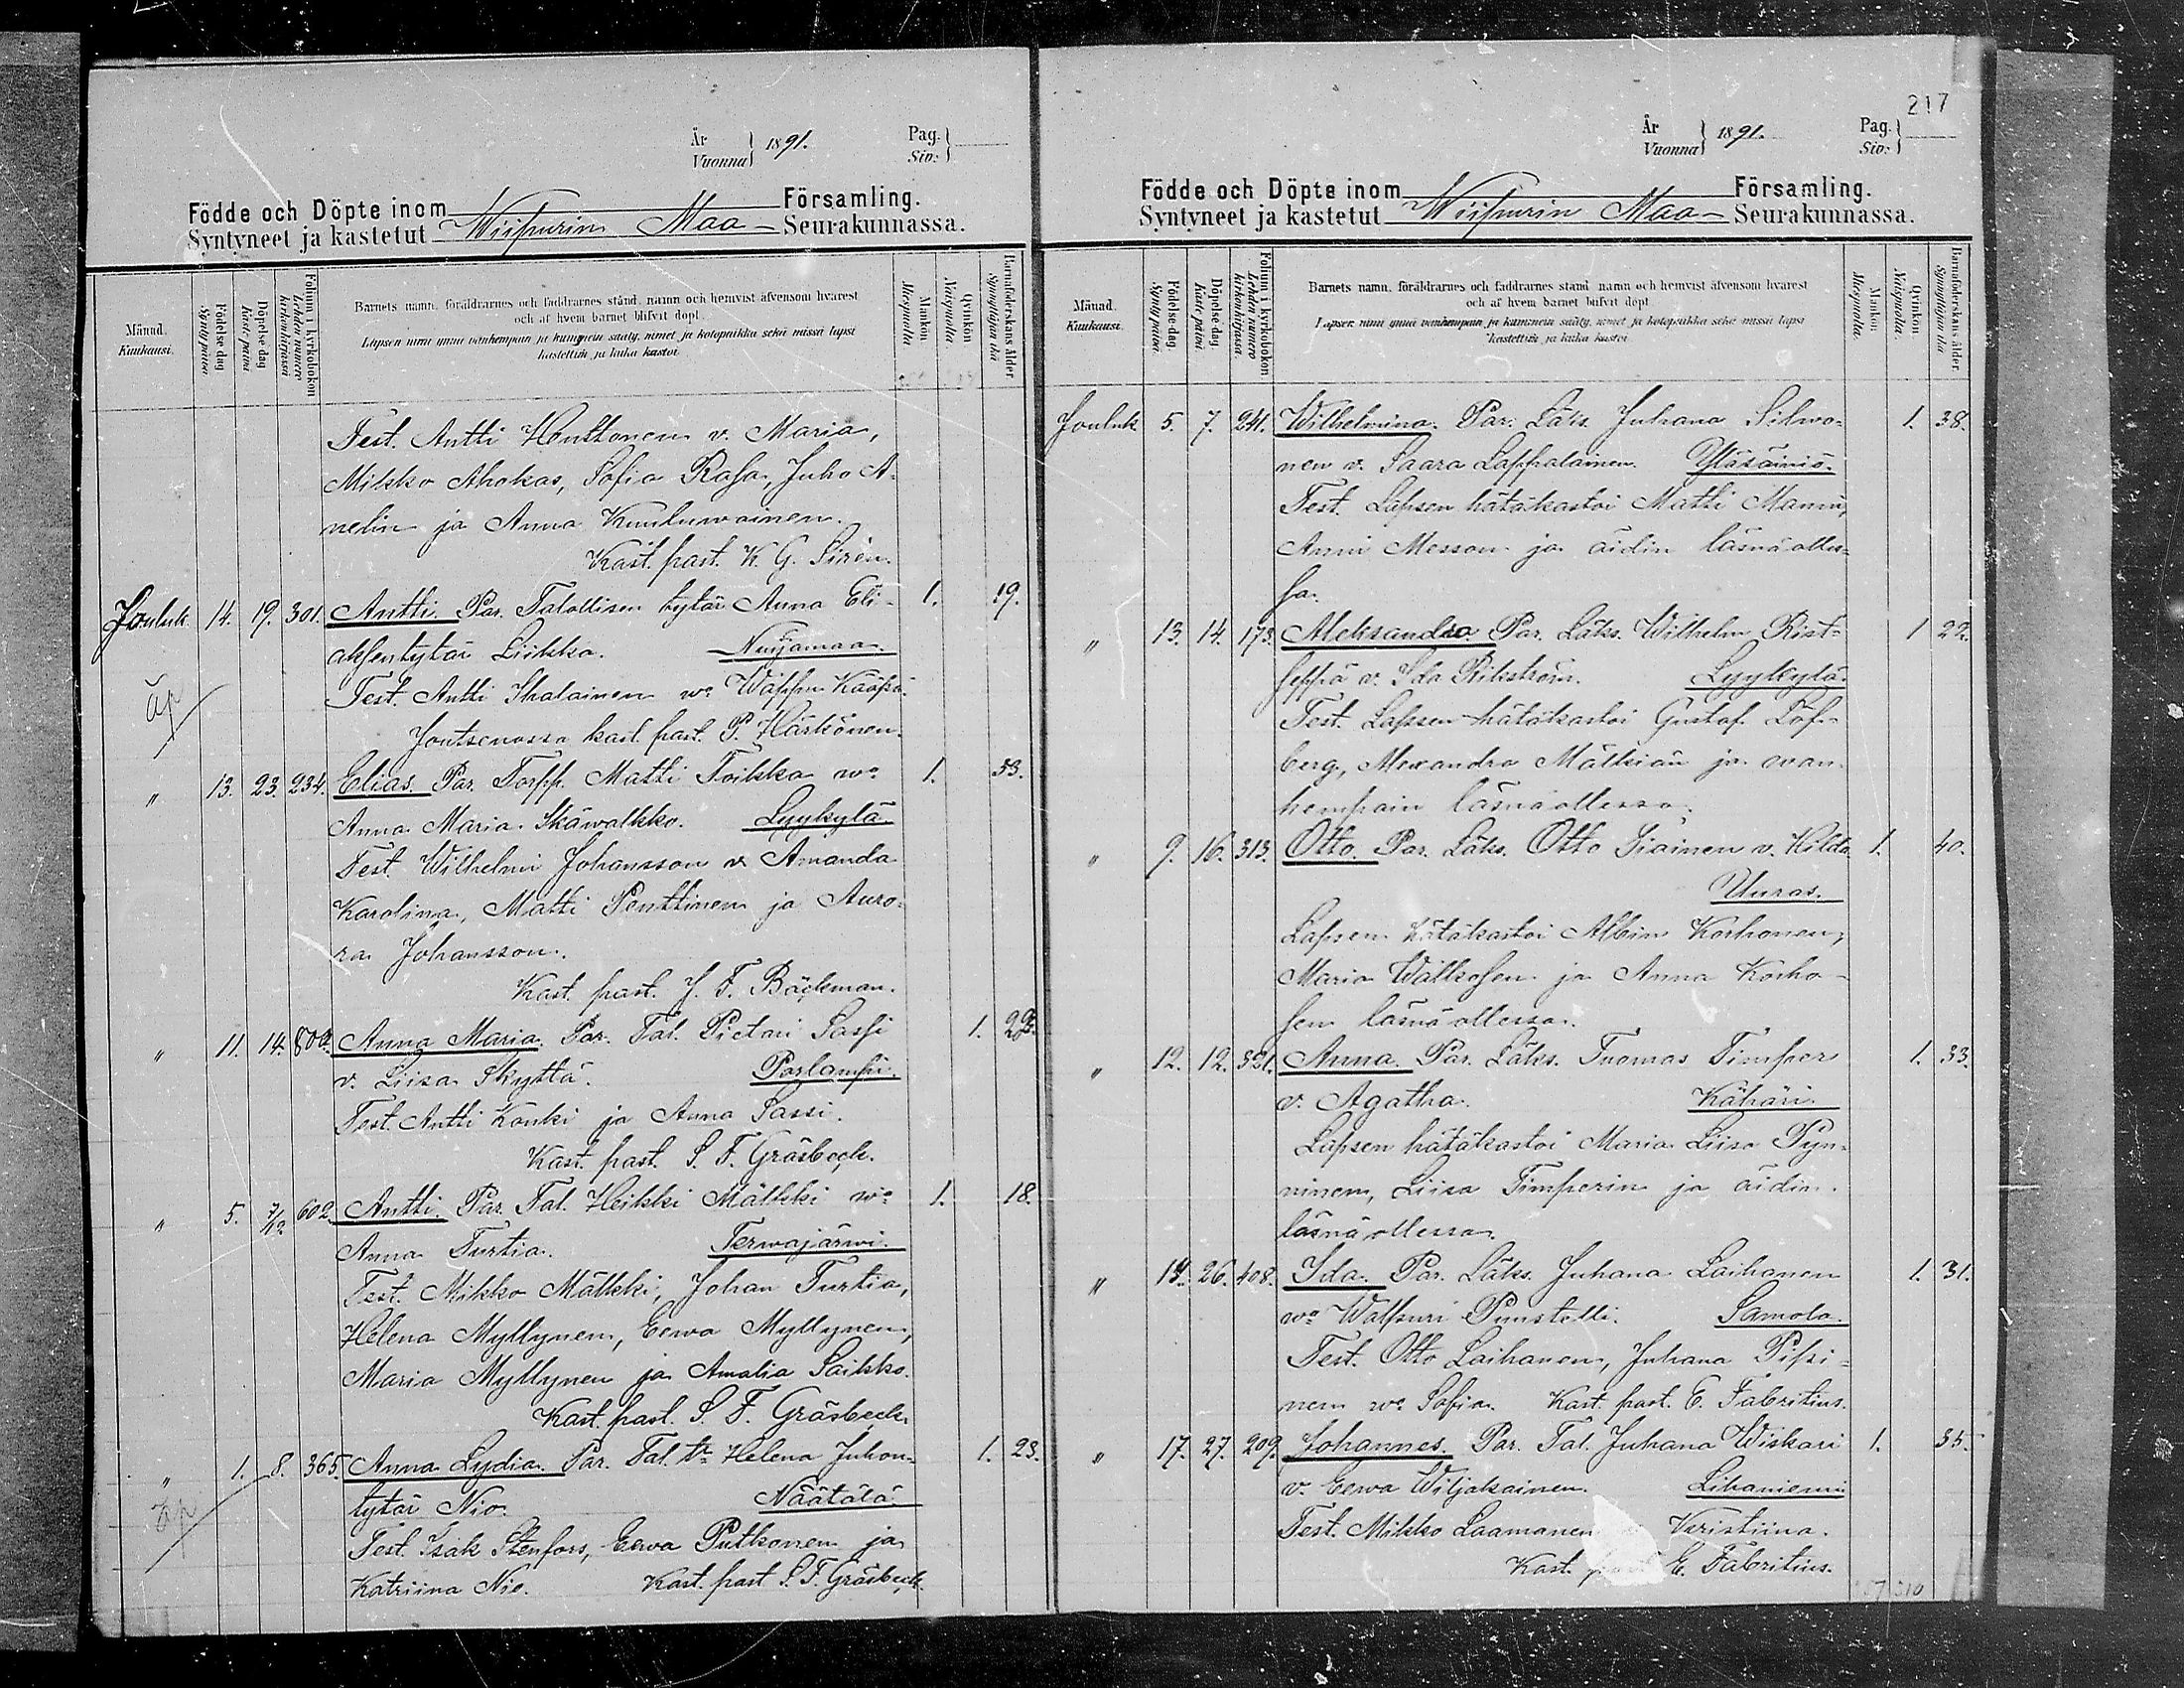 År
Vuonna } 1891.
Pag.
Siv: }
Födde och Döpte inom Församling.
Syntyneet ja kastetut Wiipurin Maa- Seurakunnassa.
Månad.
Kuukausi.
Födelse dag
Synty päivä
Döpelse dag
Kaste päivä
Folium i kyrkoboken
Lehden numero kirkonkirjassa
Barnets namn, föräldrarnes och faddrarnes stånd, namn och hemvist äfvensom hvarest
och af hvem barnet blifvit döpt.
Lapsen nimi ynnä vanhempain ja kummein sääty, nimet ja kotopaikka sekä missä lapsi
kastettiin ja kuka kastoi.
Mankön
Miespuolta
Qvinkön
Naispuolta
Barnaföderskans ålder
Synnyttäjän ikä
Test. Antti Henttonen v. Maria,
Mikko Ahokas, Sofia Rasa, Juho A-
nelin ja Anna Kuuluwainen.
Kast. past. K. G. Sirén.
Jouluk. 14. 19. 301. Antti. Par. Talollisen tytär Anna Eli- 1. 19.
aksentytär Liikka. Nuijamaa.
äp
Test. Antti Ihalainen wo Wappu Kääpä.
Joutsenossa kast. past. P. Härkönen.
" 13. 23. 234. Elias. Par. Torpp. Matti Toikka wo 1. 33.
Anna Maria Skäwalkko. Lyykylä.
Test. Wilhelmi Johansson v. Amanda
Karolina, Matti Penttinen ja Auro-
ra Johansson.
Kast. past. J. F. Bäckman.
" 11. 14. Anna Maria. Par. Tal. Pietari Sassi 1.
v. Liisa Skyttä. Porlampi.
Test. Antti Konki ja Anna Sassi.
Kast. past. S. F. Gräsbeck.
" 5. 7/12. 602. Antti. Par. Tal. Heikki Mälkki wo 1. 18.
Anna Turtia. Terwajärwi.
Test. Mikko Mälkki, Johan Turtia,
Helena Myllynen, Eewa Myllynen,
Maria Myllynen ja Amalia Saikko.
Kast. past. S. F. Gräsbeck.
" 1. 8. 365. Anna Lydia. Par. Tal. tr Helena Juhon- 1. 23.
tytär Nio. Näätälä.
äp
Test. Isak Stenfors, Eewa Putkonen ja
Katriina Nio. Kast. past S. F. Gräsbeck.
217
År
Vuonna } 1891.
Pag.
Siv: }
Födde och Döpte inom Församling.
Syntyneet ja kastetut Wiipurin Maa- Seurakunnassa.
Månad.
Kuukausi.
Födelse dag.
Synty päivä.
Döpelse dag.
Kaste päivä.
Folium i kyrkoboken
Lehden numero kirkonkirjassa.
Barnets namn, föräldrarnes och faddrarnes stånd namn och hemvist äfvensom hvarest
och af hvem barnet blifvit döpt.
Lapsen nimi ynnä vanhempain ja kummein sääty, nimet ja kotopaikka sekä missä lapsi
kastettiin ja kuka kastoi
Mankön.
Miespuolta.
Qvinkön.
Naispuolta.
Barnaföderskans ålder.
Synnyttäjän ikä
Jouluk 5. 7. 241. Wilhelmina. Par. Läks. Juhana Silwo- 1. 38.
nen v. Saara Lappalainen. Yläsäiniö.
Test. Lapsen hätäkastoi Matti Mannü,
Anni Messon ja äidin läsnäolles-
sa.
" 13. 14. 173. Aleksandra. Par. Läks. Wilhelm Rist- 1 22.
seppä v. Ida Rikström. Lyykylä.
Test. Lapsen hätäkastoi Gustaf Löf-
berg, Alexandra Mälkiän ja wan-
hempain läsnäollessa.
" 9. 16. 313. Otto. Par. Läks. Otto Siainen v. Hilda 1. 40.
Uuras.
Lapsen hätäkastoi Albin Korhonen,
Maria Walkosen ja Anna Korho-
sen läsnäollessa.
" 12. 12. 331. Anna. Par. Läks. Tuomas Timper 1. 33.
v. Agatha. Kähäri.
Lapsen hätäkastoi Maria Liisa Pyn-
ninen, Liisa Timperin ja äidin
läsnäollessa.
" 14. 26. 408. Ida. Par. Läks. Juhana Laihanen 1. 31.
wo Walpuri Punstelli. Samola.
Test. Otto Laihanen, Juhana Pipi-
nen wo Sofia. Kast. past. E. Fabritius.
" 17. 27. 209. Johannes. Par. Tal. Juhana Wiskari 1. 35.
v. Eewa Wiljakainen. Lihaniemi
Test. Mikko Laamanen Kristiina.
Kast. past E. Fabritius.
57 310